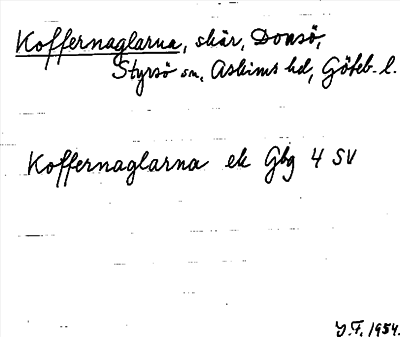 Koffernaglarna, skär, Donsö,
Styrsö sn, Askims hd, Göteb. l.
Koffernaglarna ek Gbg 4 SV
J.F. 1954.